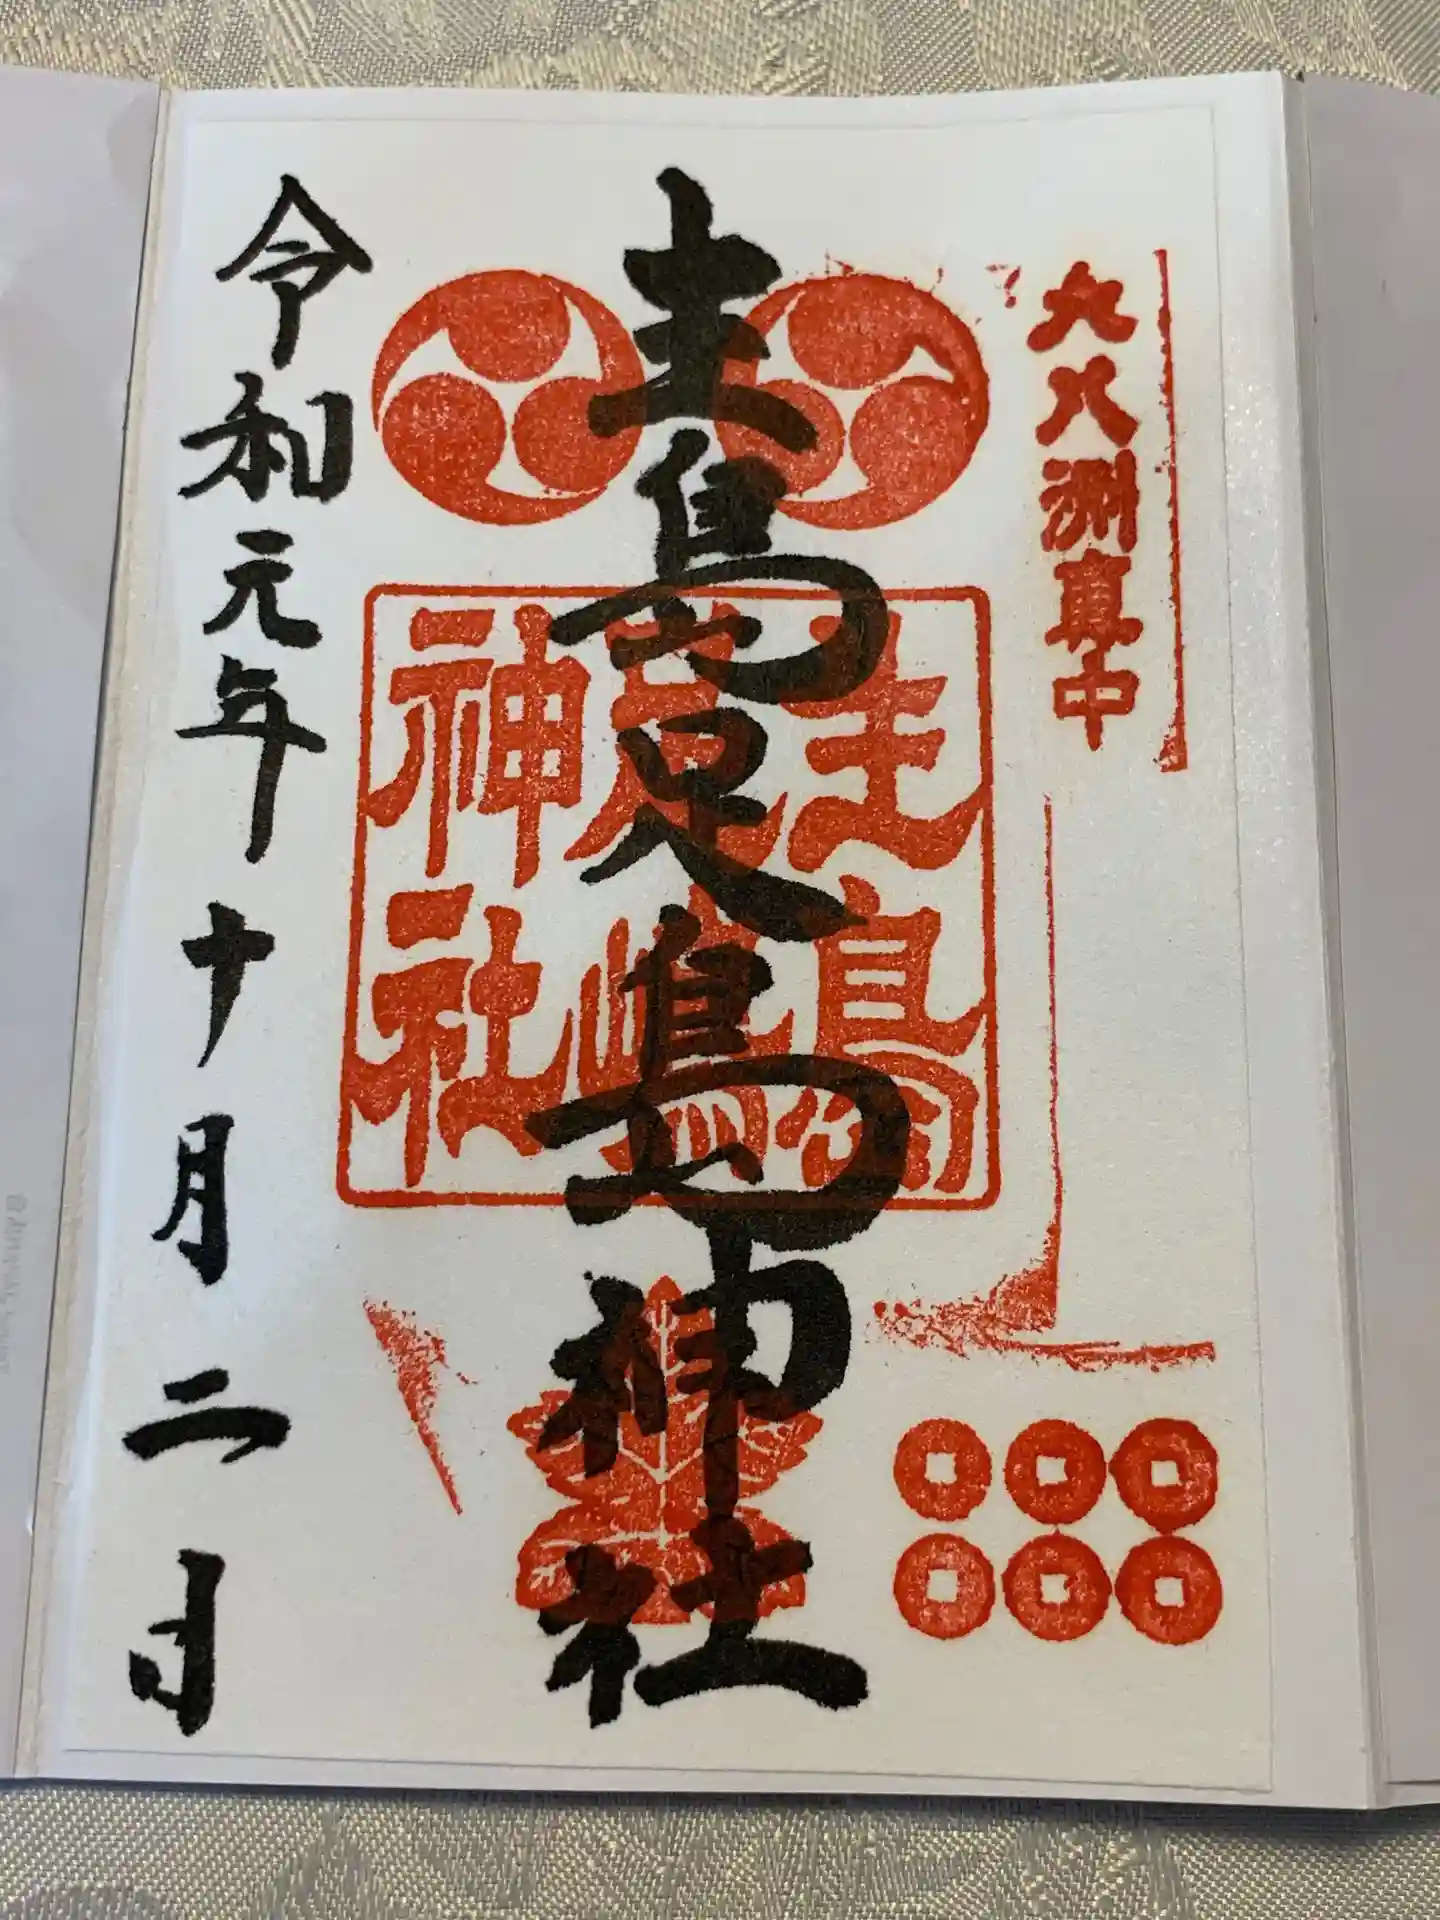 大八洲真中
生島足島神社
生島
足嶋
神社
令和元年十月二日